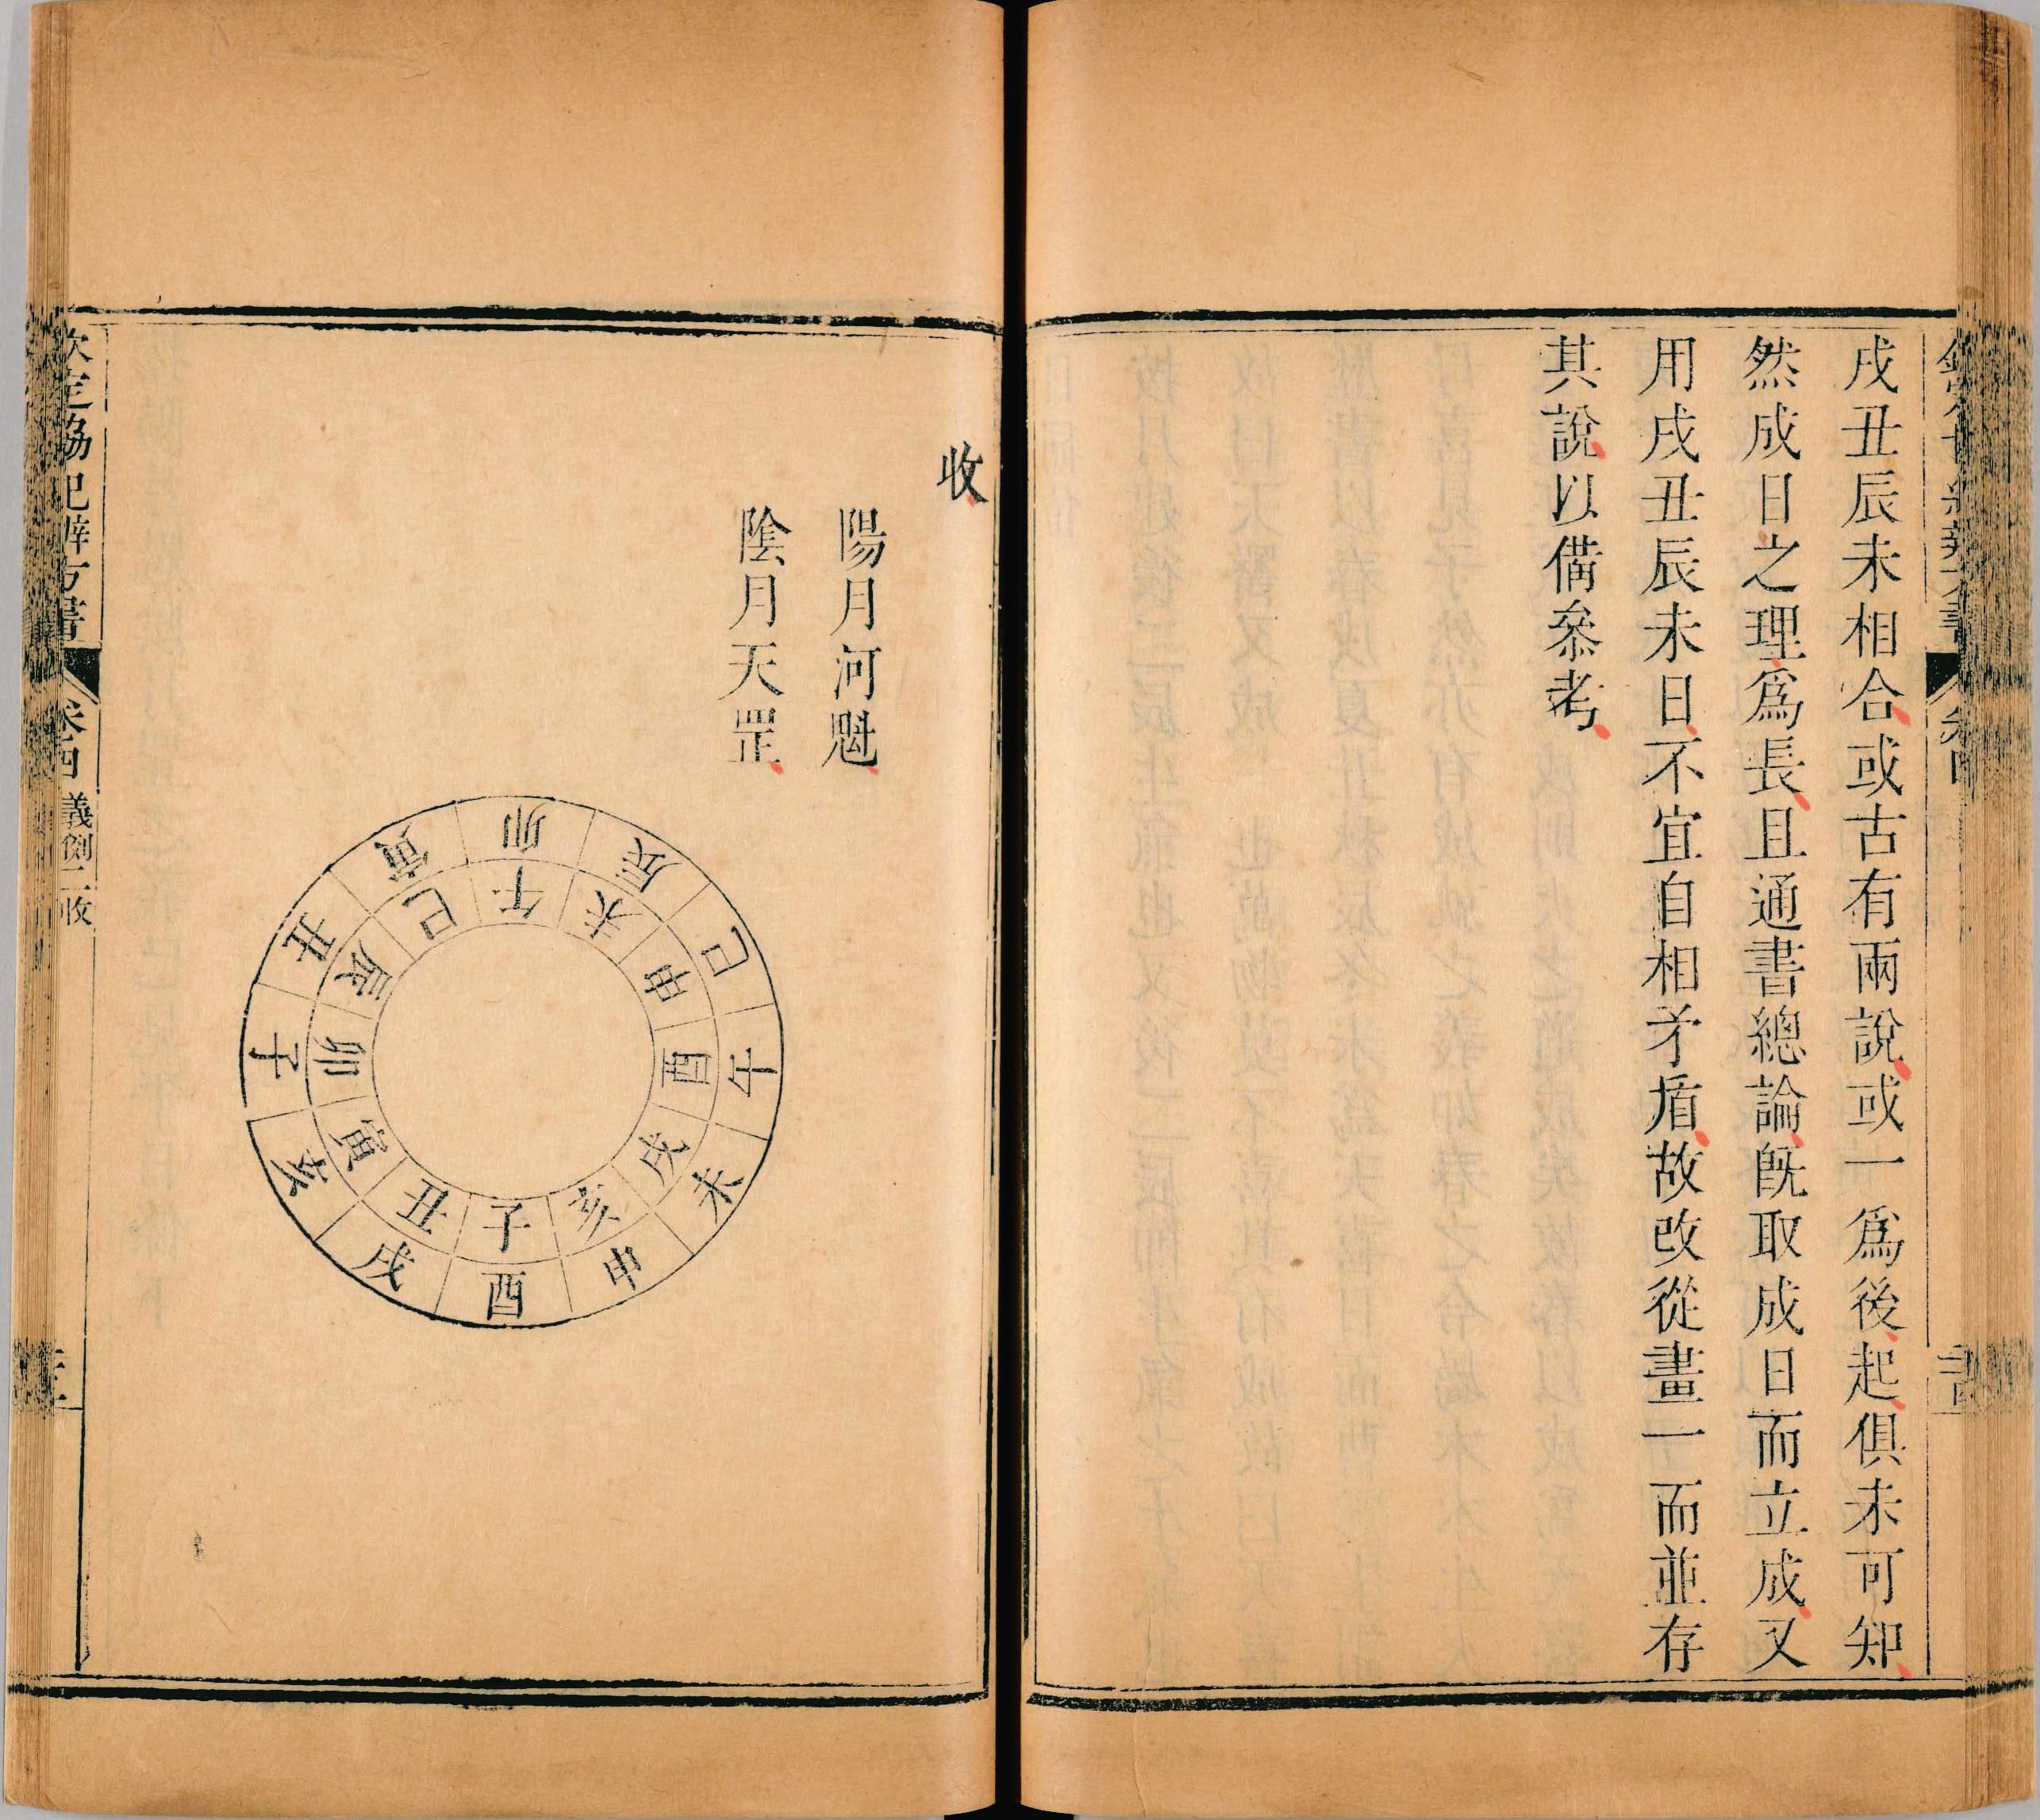 戌丑辰未相合或古有兩說或一爲後起俱未可知
然成日之理爲長且通書總論旣取成日而立成又
用戌丑辰未日不宜自相矛盾故改從畫一而並存
其說以備叅考
收
陽月河魁
陰月天罡
子丑寅卯辰巳午未申酉戌亥
卯辰巳午未申酉戌亥子丑寅
欽定協紀辨方書 卷四 義例二收